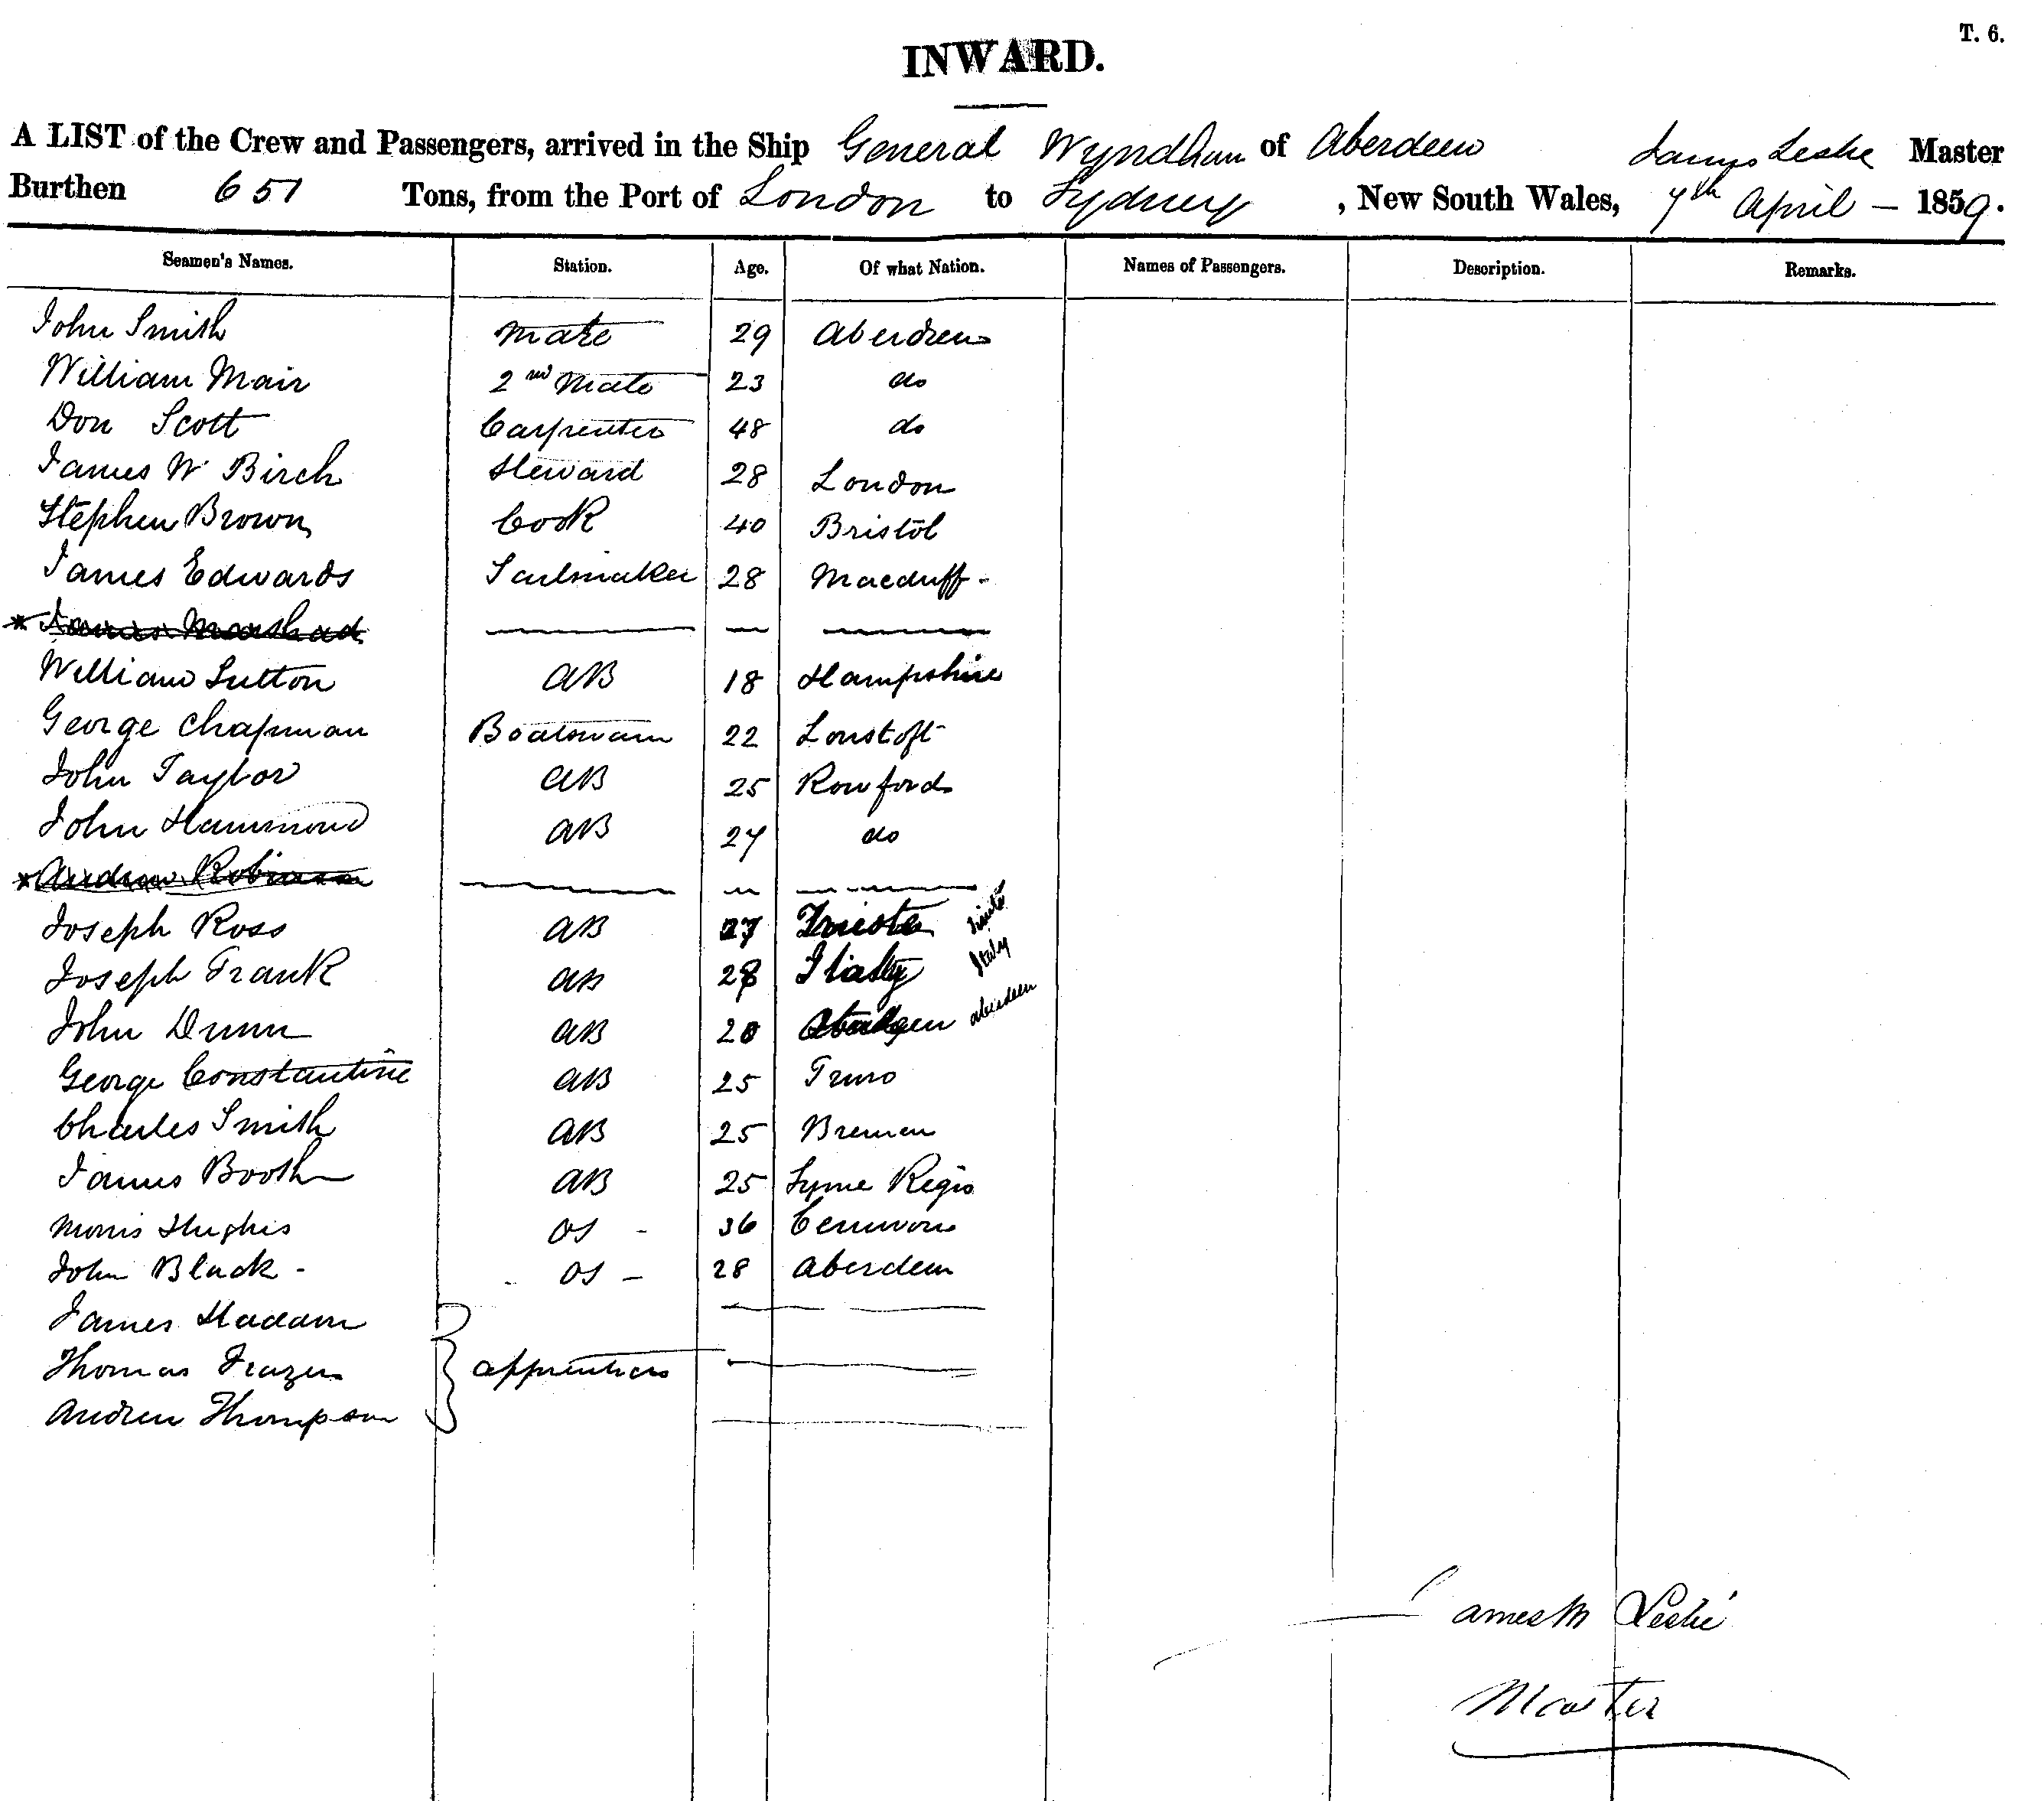 T. 6.
INWARD.
A LIST of the Crew and Passengers, arrived in the Ship General Wyndham of Aberdeen James Leslie Master
Burthen 651 Tons, from the Port of London to Sydney, New South Wales, 7th April – 1859.
Seamen's Names. Station. Age. Of what Nation. Names of Passengers. Description. Remarks.
John Smith Mate 29 Aberdeen
William Mair 2nd Mate 23 do
Don Scott Carpenter 48 do
James W Birch Steward 28 London
Stephen Brown Cook 40 Bristol
James Edwards Sailmaker 28 Macduff -
* James
William Sutton AB 18 Hampshire
George Chapman Boatswain 22 Lowstoft
John Taylor AB 25 Romford
John Hammond AB 27 do
* Andrew Robinson
Joseph Ross AB 27 Trieste Trieste
Joseph Frank AB 28 Italy Italy
John Dunn AB 20 aberdeen
George Constantine AB 25 Truro
Charles Smith AB 25 Bremen
James Booth AB 25 Lyme Regis
Morris Hughes OS - 36
John Black - OS - 28 Aberdeen
James Haddon
Thomas Frazer apprentices
Andrew Thompson
James M Leslie
Master